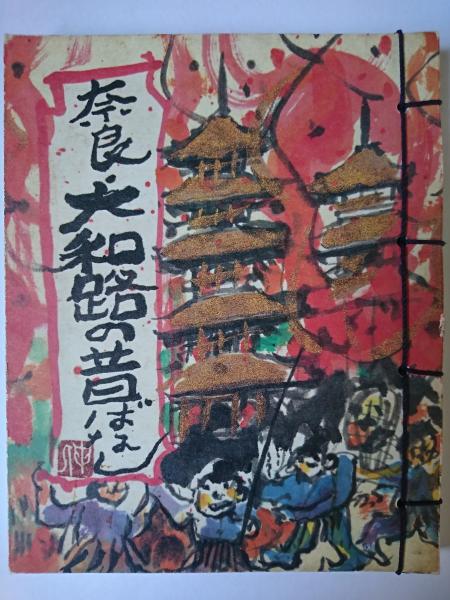 奈良・大和路の昔ばなし